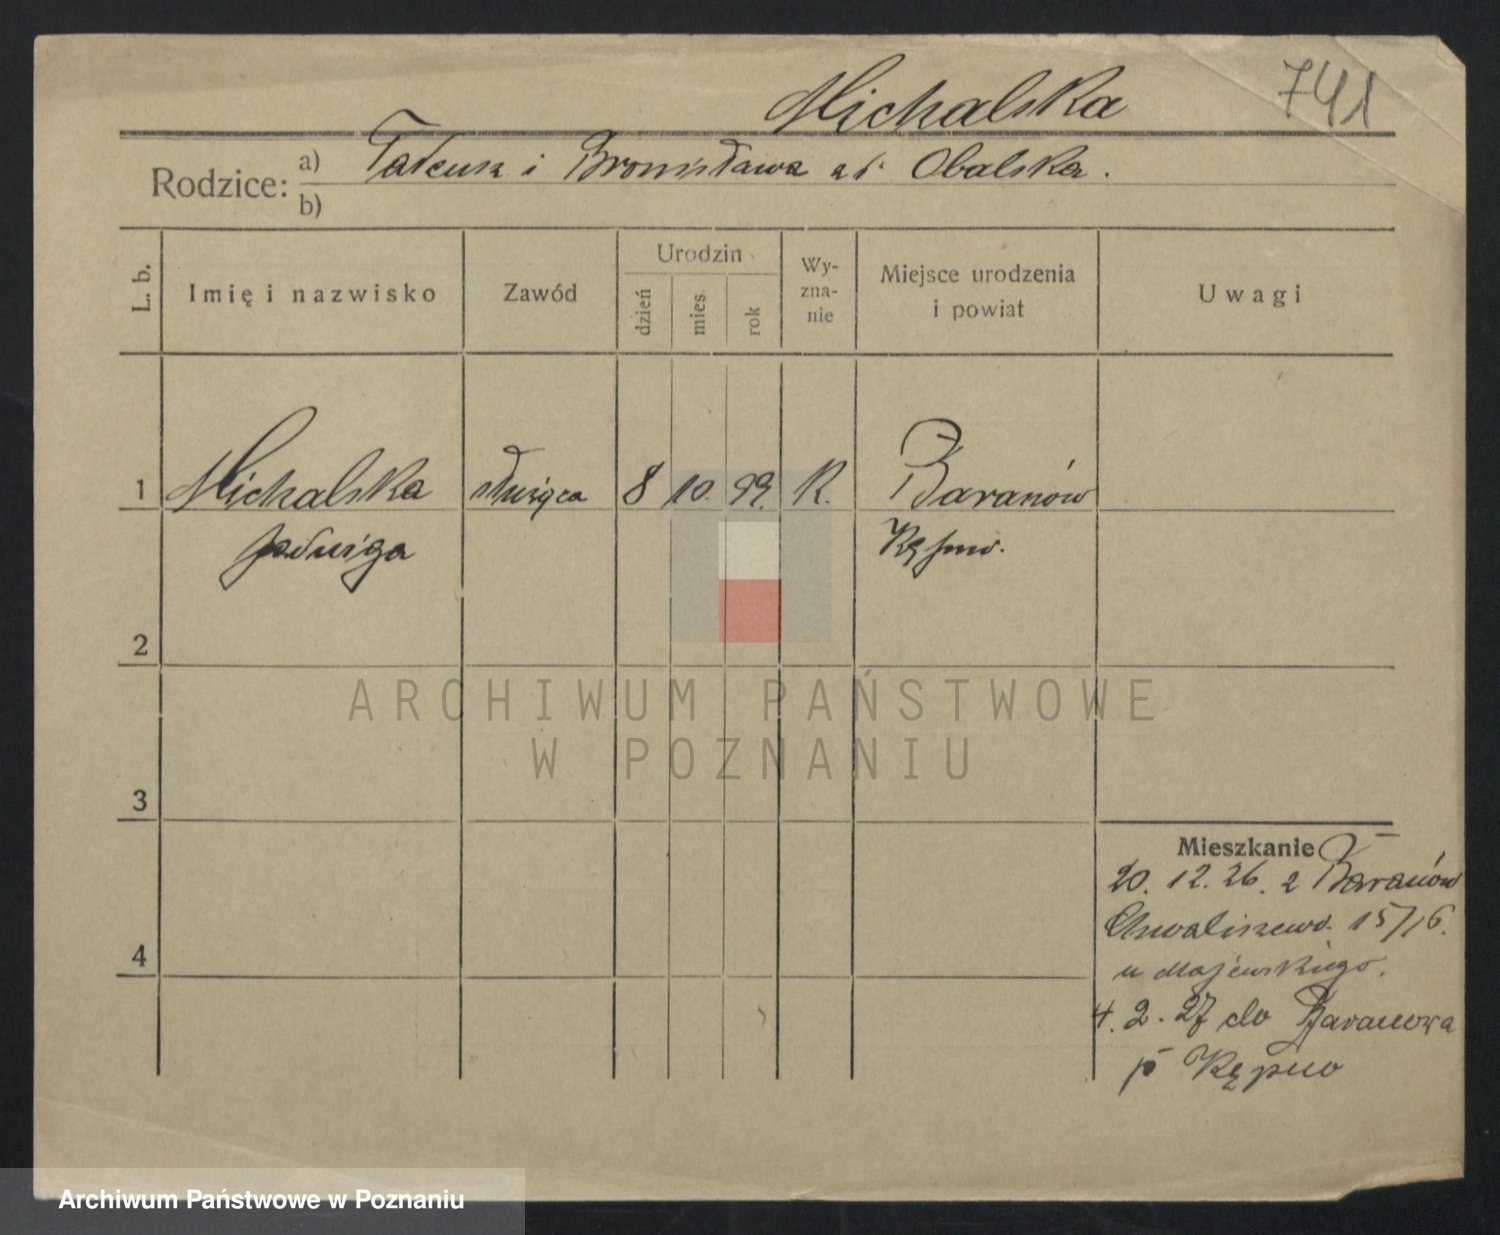 Michalska
741
Rodzice: a) Tadeusz i Bronisława z d. Obalska.
b)
L. b.
Imię i nazwisko
Zawód
Urodzin
dzień
mies.
rok
Wy-
zna-
nie
Miejsce urodzenia
i powiat
Uwagi
1 Michalska służąca 8 10. 99. K. Baranów
Jadwiga Kępno.
2
ARCHIWUM PAŃSTWOWE
W POZNANIU
3
Mieszkanie
20. 12. 26. z Baranów
Chwaliszewo. 15/16.
u Majewskiego.
4
4. 2. 27 do Baranowa
p Kępno
Archiwum Państwowe w Poznaniu